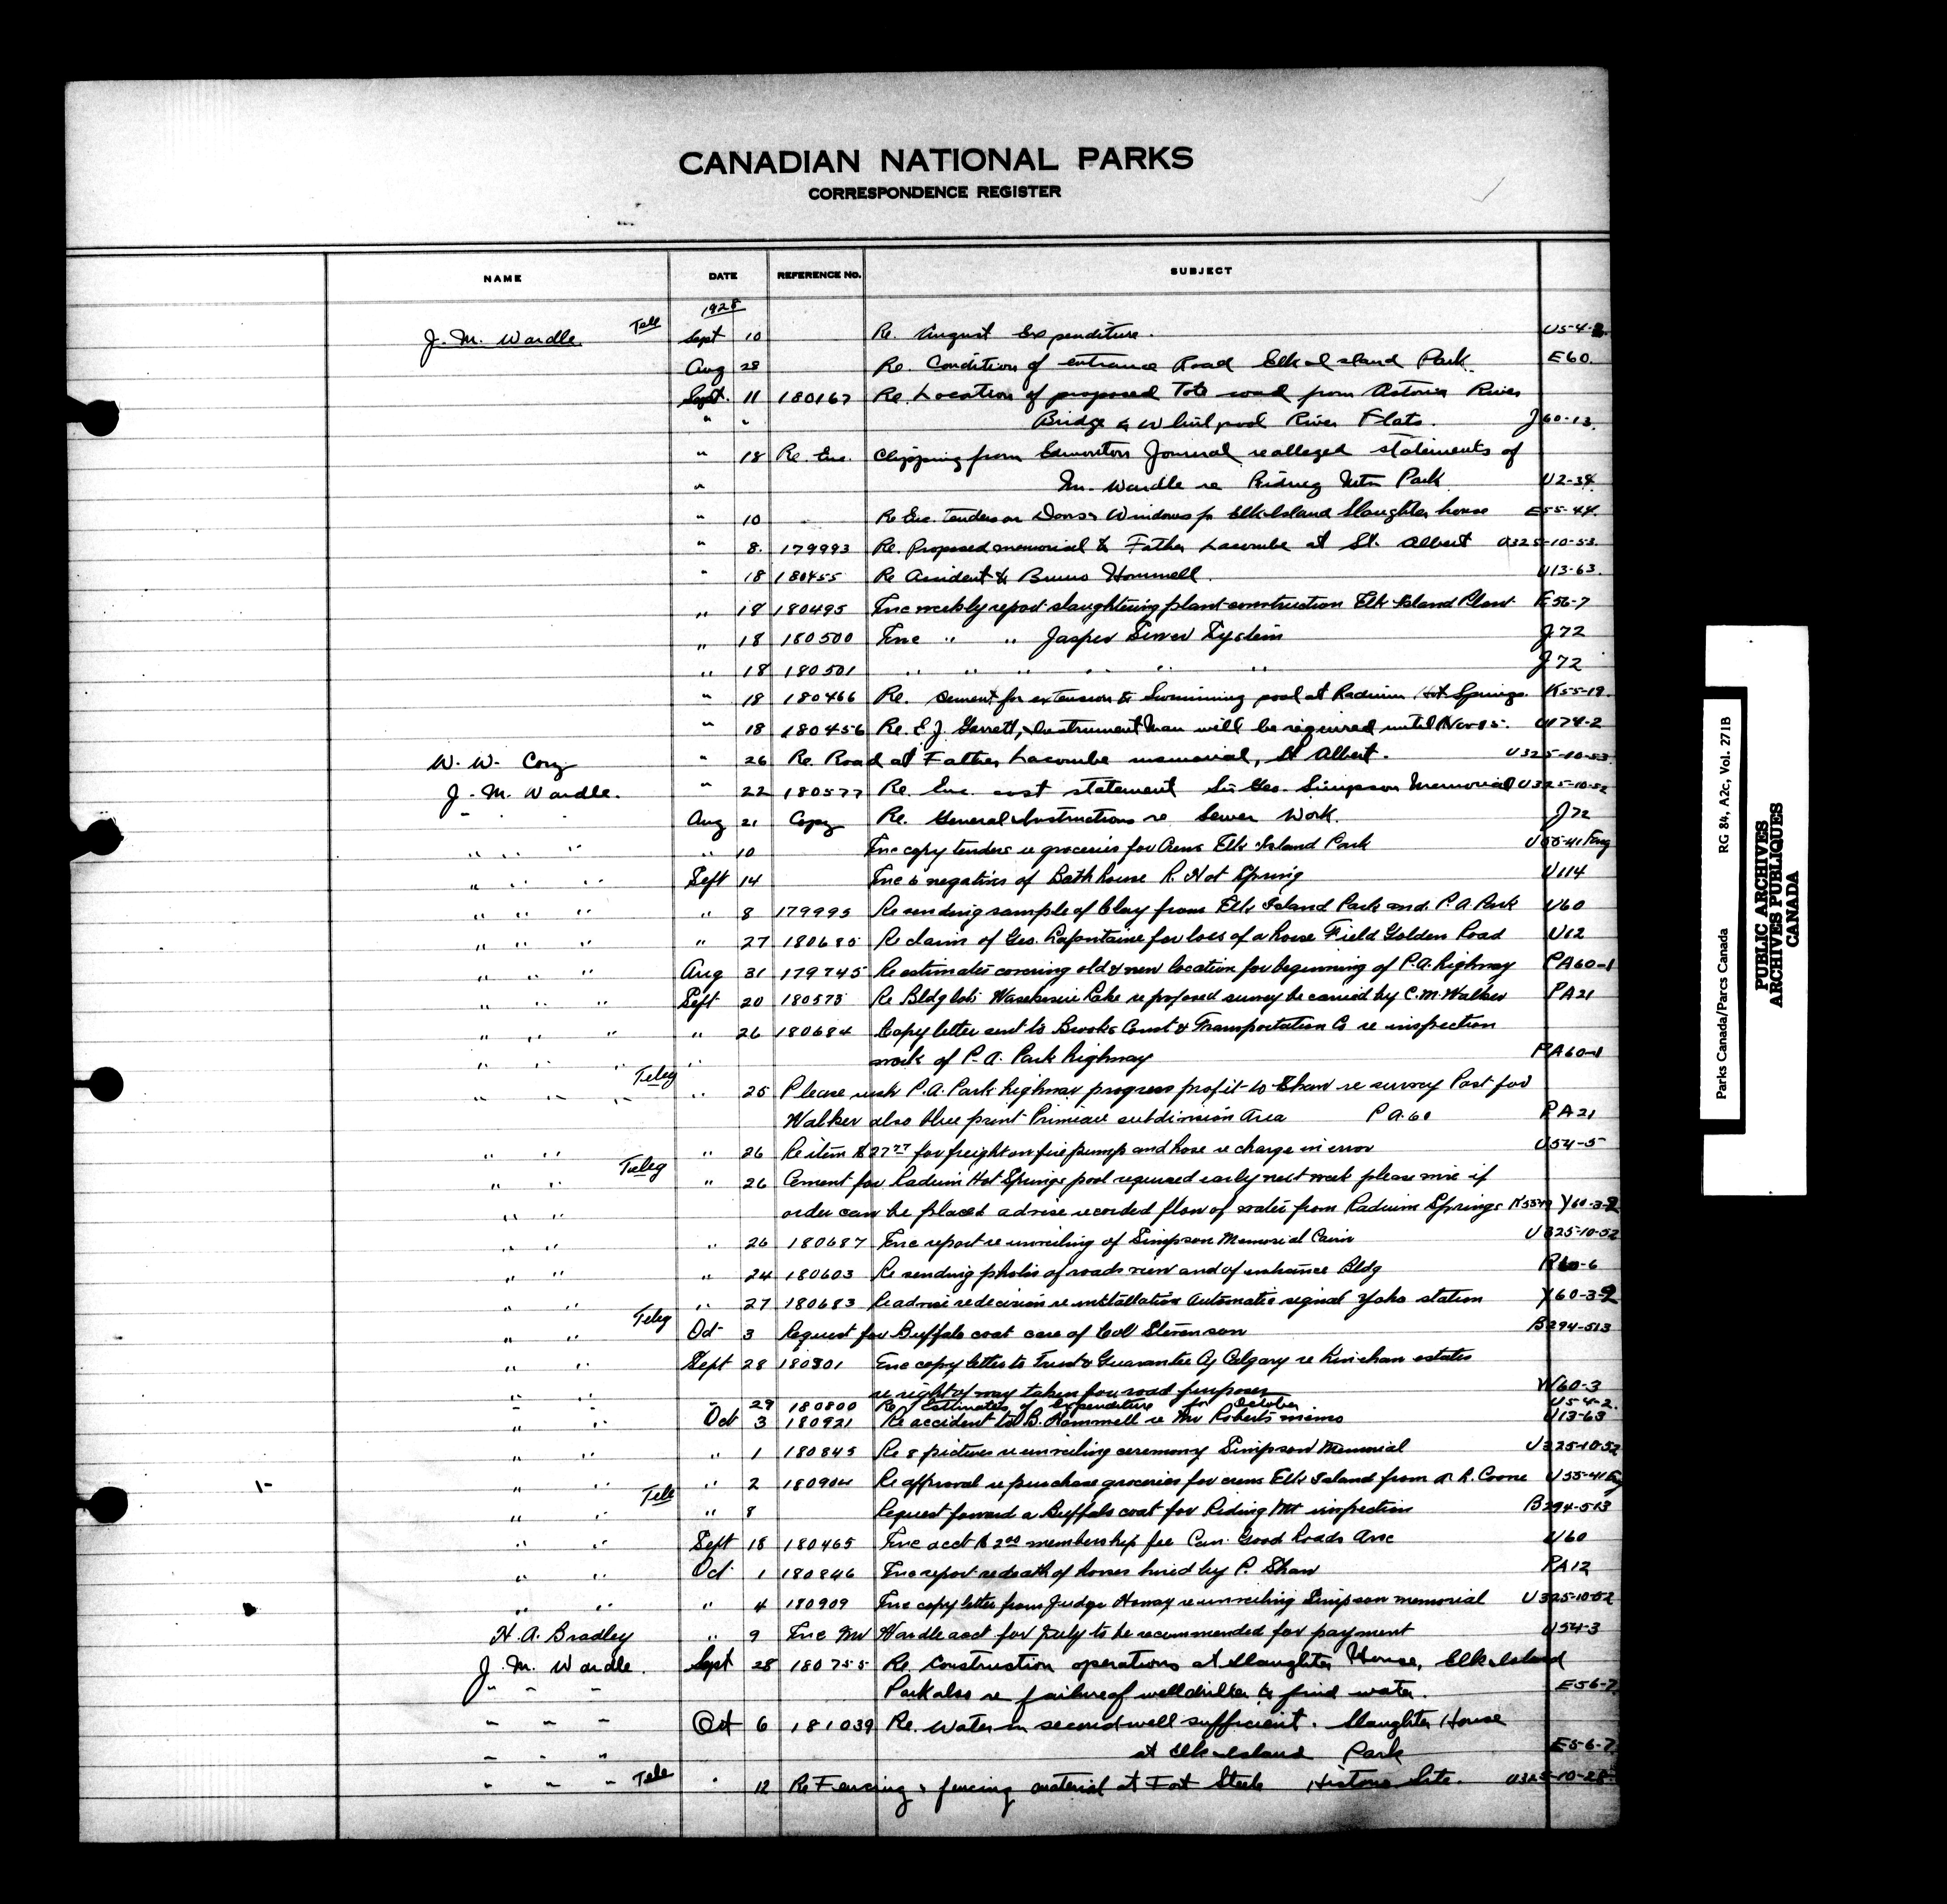 CANADIAN NATIONAL PARKS
CORRESPONDENCE REGISTER
NAME DATE REFERENCE NO. SUBJECT
1928
J. M. Wardle Tele Sept 10 Re. August Expenditure. U5-4-2
Aug 28 Re. Condition of entrance Road Elk Island Park. E60
Sept. 11 180167 Re. Location of proposed Tote road from Astoria River
" " Bridge & Whirlpool River Flats. J60-13.
" 18 Re. Enc. Clipping from Edmonton Journal re alleged statements of
" Mr. Wardle re Riding Mtn Park U2-34
" 10 Re Enc. tenders on Doors & Windows for Elk Island Slaughter house E55-44.
" 8. 179993 Re. Proposed memorial to Father Lacombe at St. Albert U325-10-53.
" 18 180455 Re Accident to Bruno Hommell. U13-63.
" 18 180495 Enc weekly report slaughtering plant construction Elk Island Plant E56-7
" 18 180500 Enc " " Jasper Sewer System J72
" 18 180501 " " " " " " J72
" 18 180466 Re. Cement for extension to Swimming pool at Radium Hot Springs. K55-19.
" 18 180456 Re. E. J. Garrett, Instrument Man will be required until Nov-15. U174-2
W. W. Cory " 26 Re. Road at Father Lacombe memorial, St Albert. U325-10-53
J. M. Wardle. " 22 180577 Re. Enc. cost statement Sir Geo. Simpson Memorial U325-10-52
" " Aug 21 Copy Re. General Instructions re Sewer Work. J72
" " " " 10 Enc copy tenders re groceries for Arena Elk Island Park U55-41
" " " Sept 14 Enc 6 negatives of Bath house R. Hot Spring U114
" " " " 8 179995 Re sending sample of Clay from Elk Island Park and P.A. Park U60
" " " " 27 180685 Re claim of Geo. Lafontaine for loss of a horse Field Golden Road U12
" " " Aug 31 179745 Re estimates covering old & new location for beginning of P.A. highway PA60-1
" " " Sept 20 180573 Re Bldg lots Waskesiu Lake re proposed survey be carried by C. M. Walker PA21
" " " " 26 180684 Copy letter sent to Brooks Const & Transportation Co re inspection
" " " " work of P.A. Park highway PA60-1
" " " Teleg " 25 Please rush P.A. Park highway progress profit to Shaw re survey Post for
Walker also blue print Primeau subdivision Area PA.60 PA21
" " " 26 Re item $27.77 for freight on fire pump and hose re charge in error U54-5
" " Teleg " 26 Cement for Radium Hot Springs pool required early next week please wire if
" " order can be placed advise recorded flow of water from Radium Springs K55-19 Y60-3-2
" " " 26 180687 Enc report re unveiling of Simpson Memorial Cairn U325-10-52
" " " 24 180603 Re sending photos of roads view and of entrance Bldg R60-6
" " " 27 180683 Re advise re decision re installation automatic signal Yoho station Y60-3-2
" " Teleg Oct 3 Request for Buffalo coat care of Col Stevenson B294-513
" " Sept 28 180801 Enc copy letter to Trust & Guarantee Cy Calgary re Kinehan estates
" " re right of way taken for road purposes W60-3
" " " 29 180800 Re Estimates of Expenditure for October U54-2
" " Oct 3 180921 Re accident to B. Hommell re Mr Roberts memo U13-63
" " " 1 180845 Re 8 pictures re unveiling ceremony Simpson Memorial U325-10-52
" " " 2 180904 Re approval re purchase groceries for arena Elk Island from R. Coone U55-41
" " Tele " 8 Request forward a Buffalo coat for Riding Mt inspection B294-513
" " Sept 18 180465 Enc acct $2.00 membership fee Can. Good Roads Assc U60
" " Oct 1 180846 Enc report re death of horses hired by P. Shaw PA12
" " " 4 180909 Enc copy letter from Judge Howay re unveiling Simpson memorial U325-10-52
H. A. Bradley " 9 Enc Mr Wardle acct for July to be recommended for payment U54-3
J. M. Wardle. Sept 28 180755 Re. Construction operations at Slaughter House, Elk Island
" " " Park also re failure of well driller to find water. E56-7
" " " Oct 6 181039 Re. Water in second well sufficient. Slaughter House
" " " at Elk Island Park E5-6-7
" " " Tele " 12 Re Fencing & fencing material at Fort Steele Historic Site. U325-10-28
Parks Canada/Parcs Canada RG 84, A2c, Vol. 271B
PUBLIC ARCHIVES
ARCHIVES PUBLIQUES
CANADA